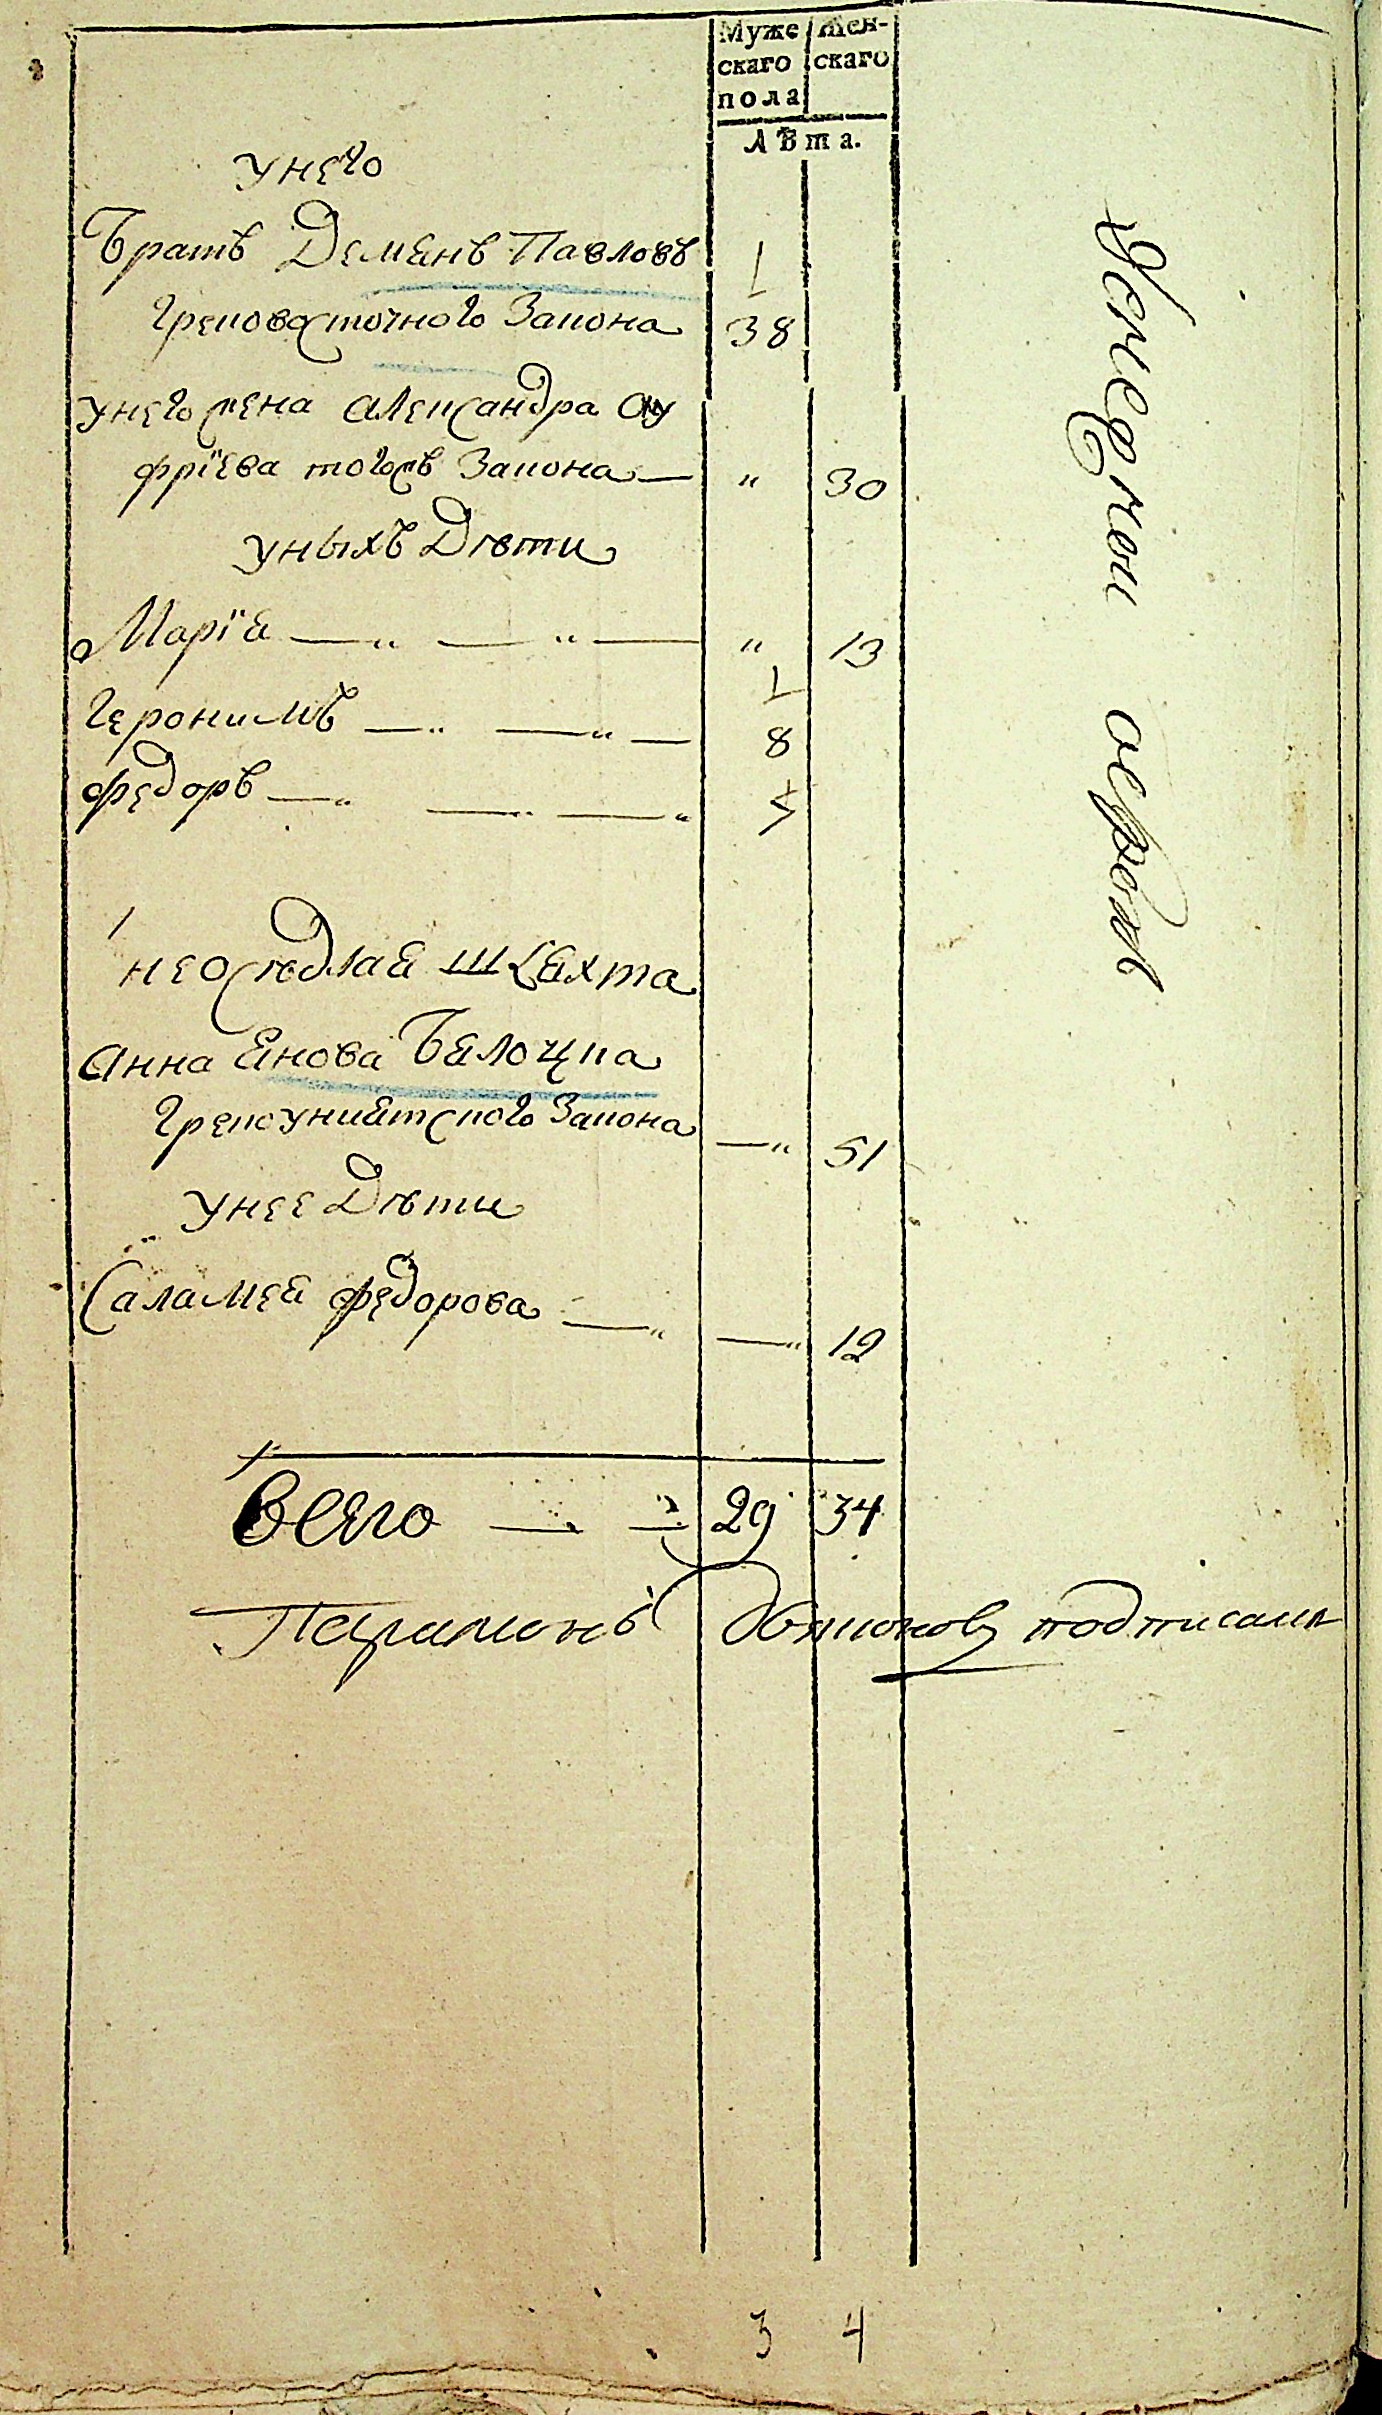 Муже
скаго
пола
Жен-
скаго
Лѣта.
унего
Братъ Демянъ Павловъ
1
грековосточного Закона 38
унего жена александра Ону
фрїева тогожъ Закона — " 30
уныхъ Дѣти
Марїя — " — " — " 13
1
Геронимъ — " — " — 8
федоръ — " — " — "
неоседлая шляхта
анна Янова Бялоцка
Грекоуниятского Закона — " 51
унее Дѣти
Саламея федорова — " — " 12
Всего — 29 34
подписалъ
3 4